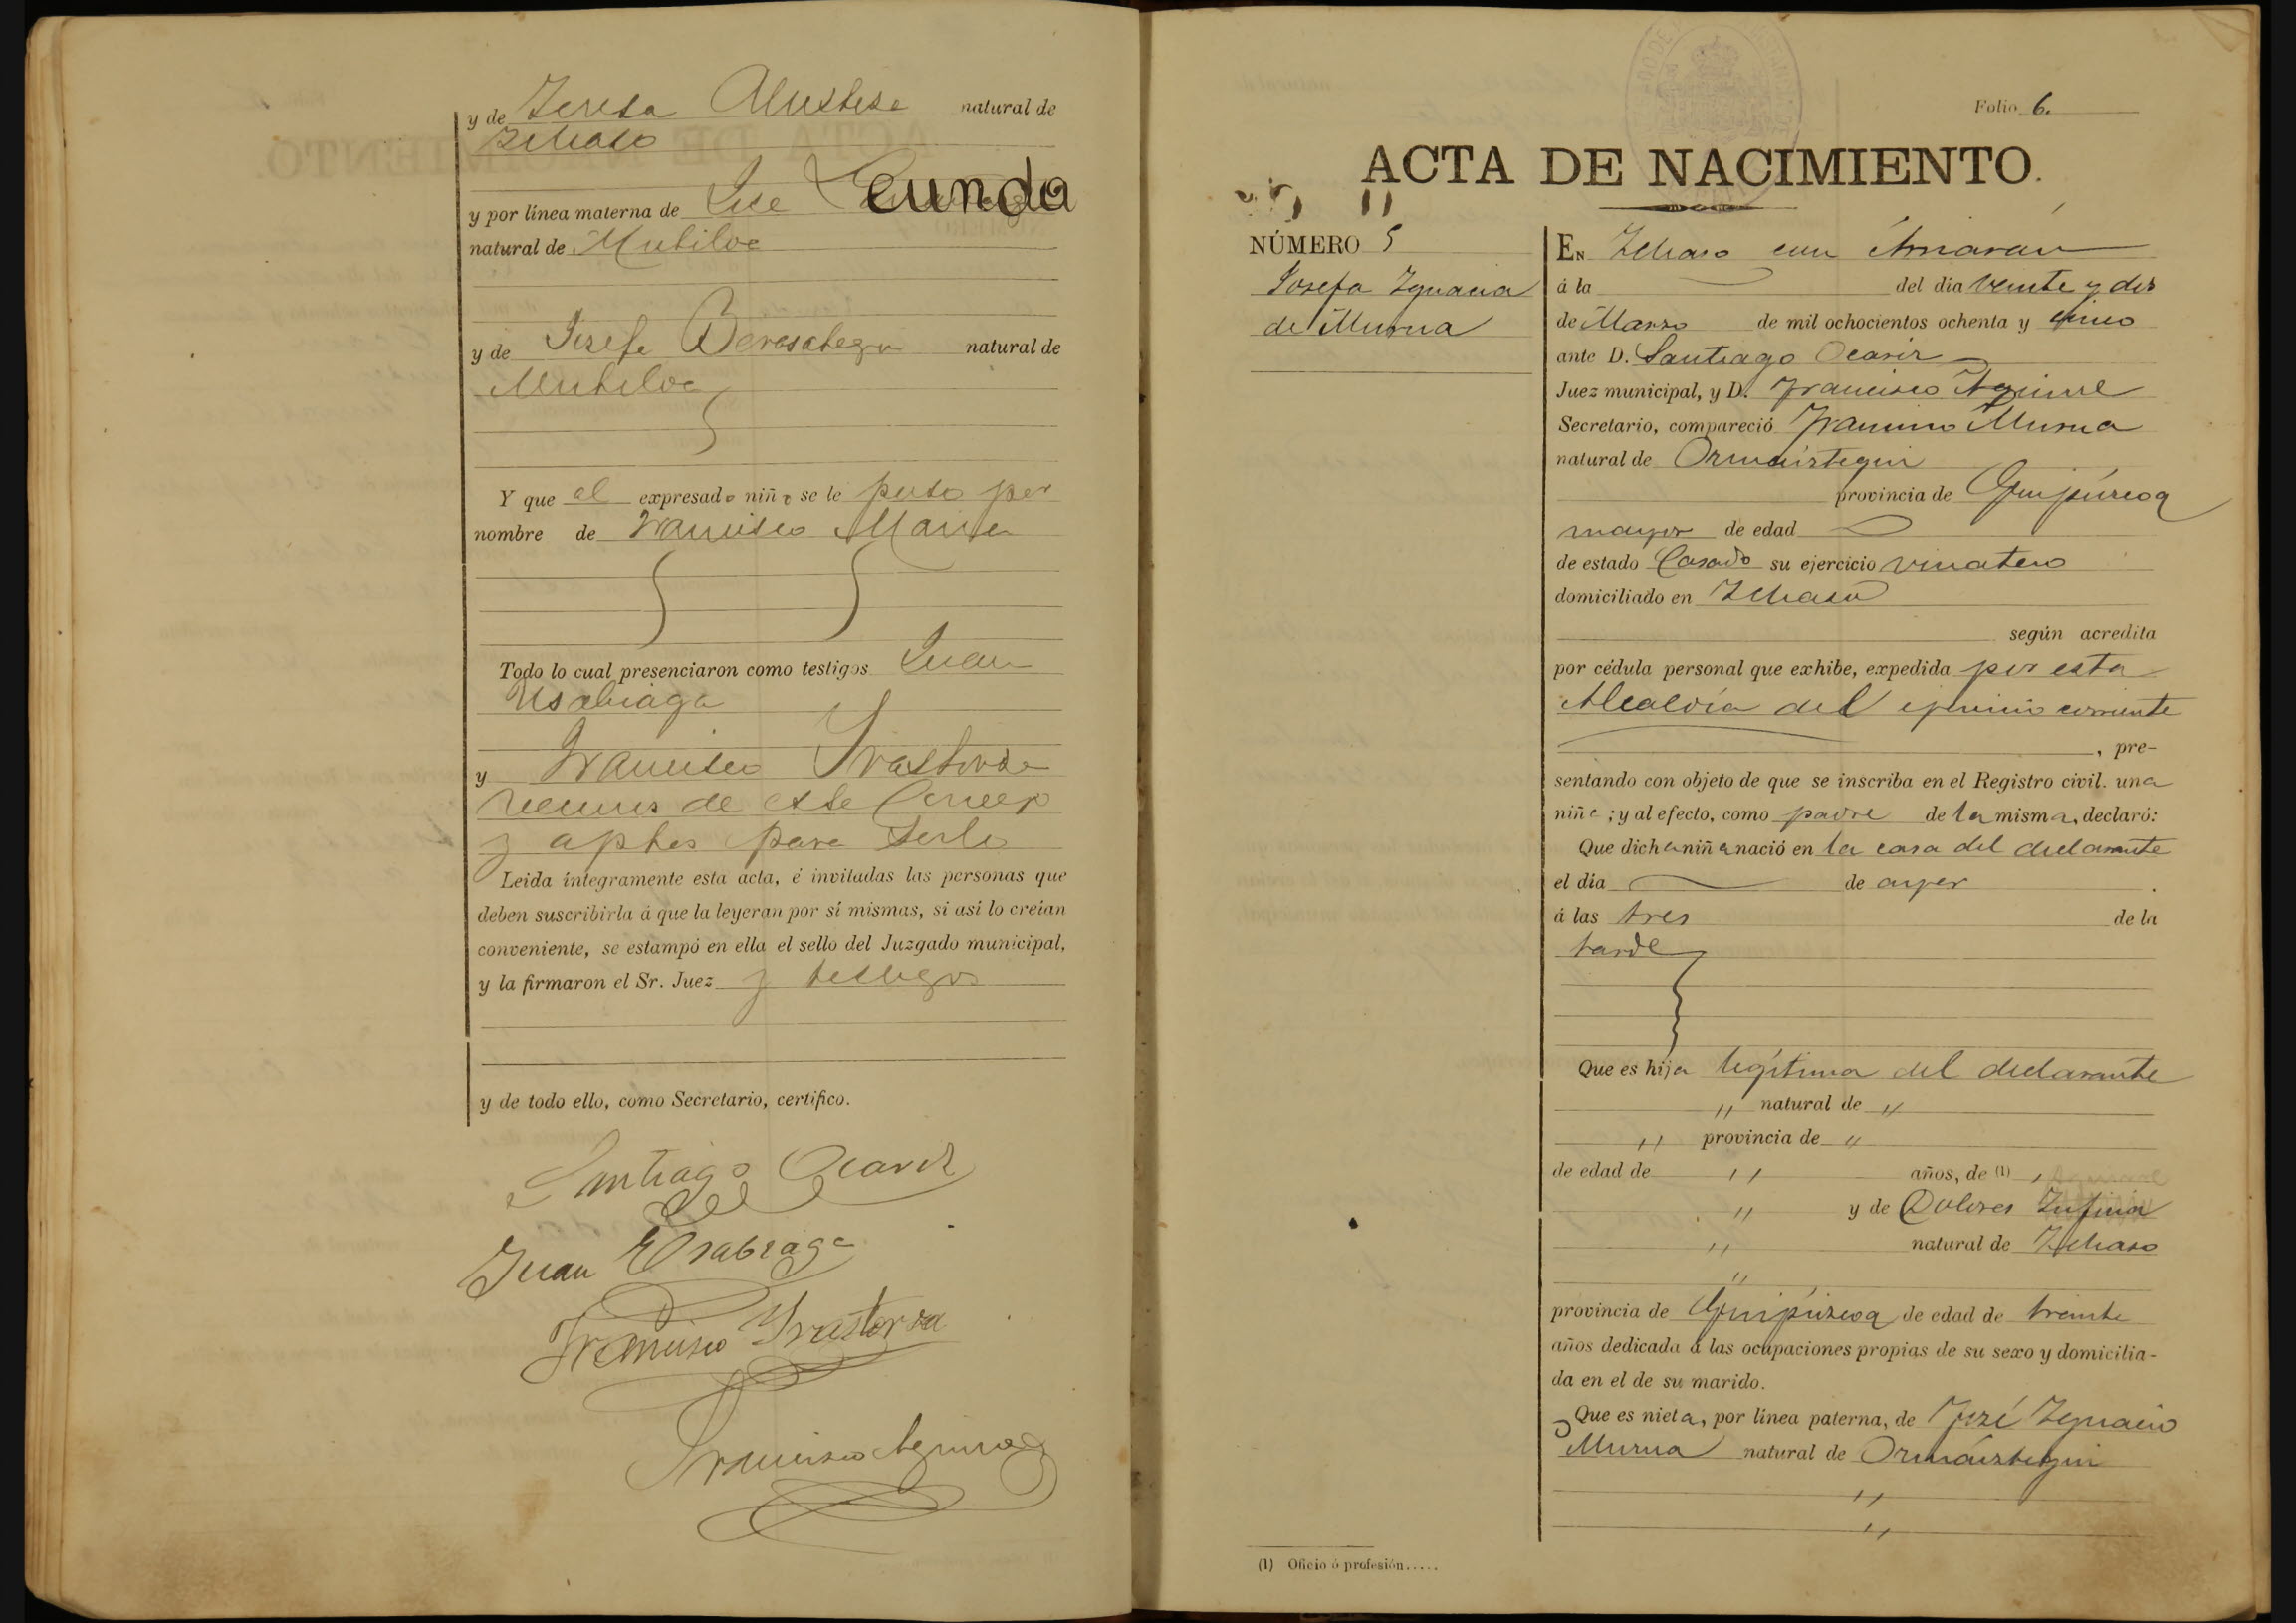 y de Teresa Alustisa natural de
Ichaso
cunda
y por línea materna de José
natural de Mutiloa
y de Josefa Berasategui natural de
Mutiloa
Y que al expresado niño se le puso por
nombre de Francisco María
Todo lo cual presenciaron como testigos Juan
Usabiaga
y Francisco Irastorza
vecinos de este Concejo
y aptos para serlo
Leida íntegramente esta acta, é invitadas las personas que
deben suscribirla á que la leyeran por sí mismas, si así lo creian
conveniente, se estampó en ella el sello del Juzgado municipal,
y la firmaron el Sr. Juez y testigos
y de todo ello, como Secretario, certifico.
Santiago Ocariz
Juan Usabiaga
Francisco Irastorza
Francisco Aguirre
Folio 6.
ACTA DE NACIMIENTO.
NÚMERO 5
Josefa Ygnacia
de Murua
EN Ichaso
á la del dia veinte y dos
de Marzo de mil ochocientos ochenta y cinco
ante D. Santiago Ocariz
Juez municipal, y D. Francisco Aguirre
Secretario, compareció Francisco Murua
natural de Ormáiztegui
provincia de Guipúzcoa
mayor de edad
de estado Casado su ejercicio vinatero
domiciliado en Ichaso
según acredita
por cédula personal que exhibe, expedida por esta
Alcaldía del ejercicio corriente
, pre-
sentando con objeto de que se inscriba en el Registro civil. una
niña ; y al efecto, como padre de la misma, declaró:
Que dicha niña nació en la casa del declarante
el dia de ayer .
á las tres de la
tarde
Que es hija legítima del declarante
" natural de "
" provincia de "
de edad de " años, de (1) "
" y de Dolores
" natural de Ichaso
"
provincia de Guipúzcoa de edad de treinta
años dedicada á las ocupaciones propias de su sexo y domicilia-
da en el de su marido.
Que es nieta, por línea paterna, de José Ygnacio
Murua natural de Ormáiztegui
"
"
(1) Oficio ó profesión.....